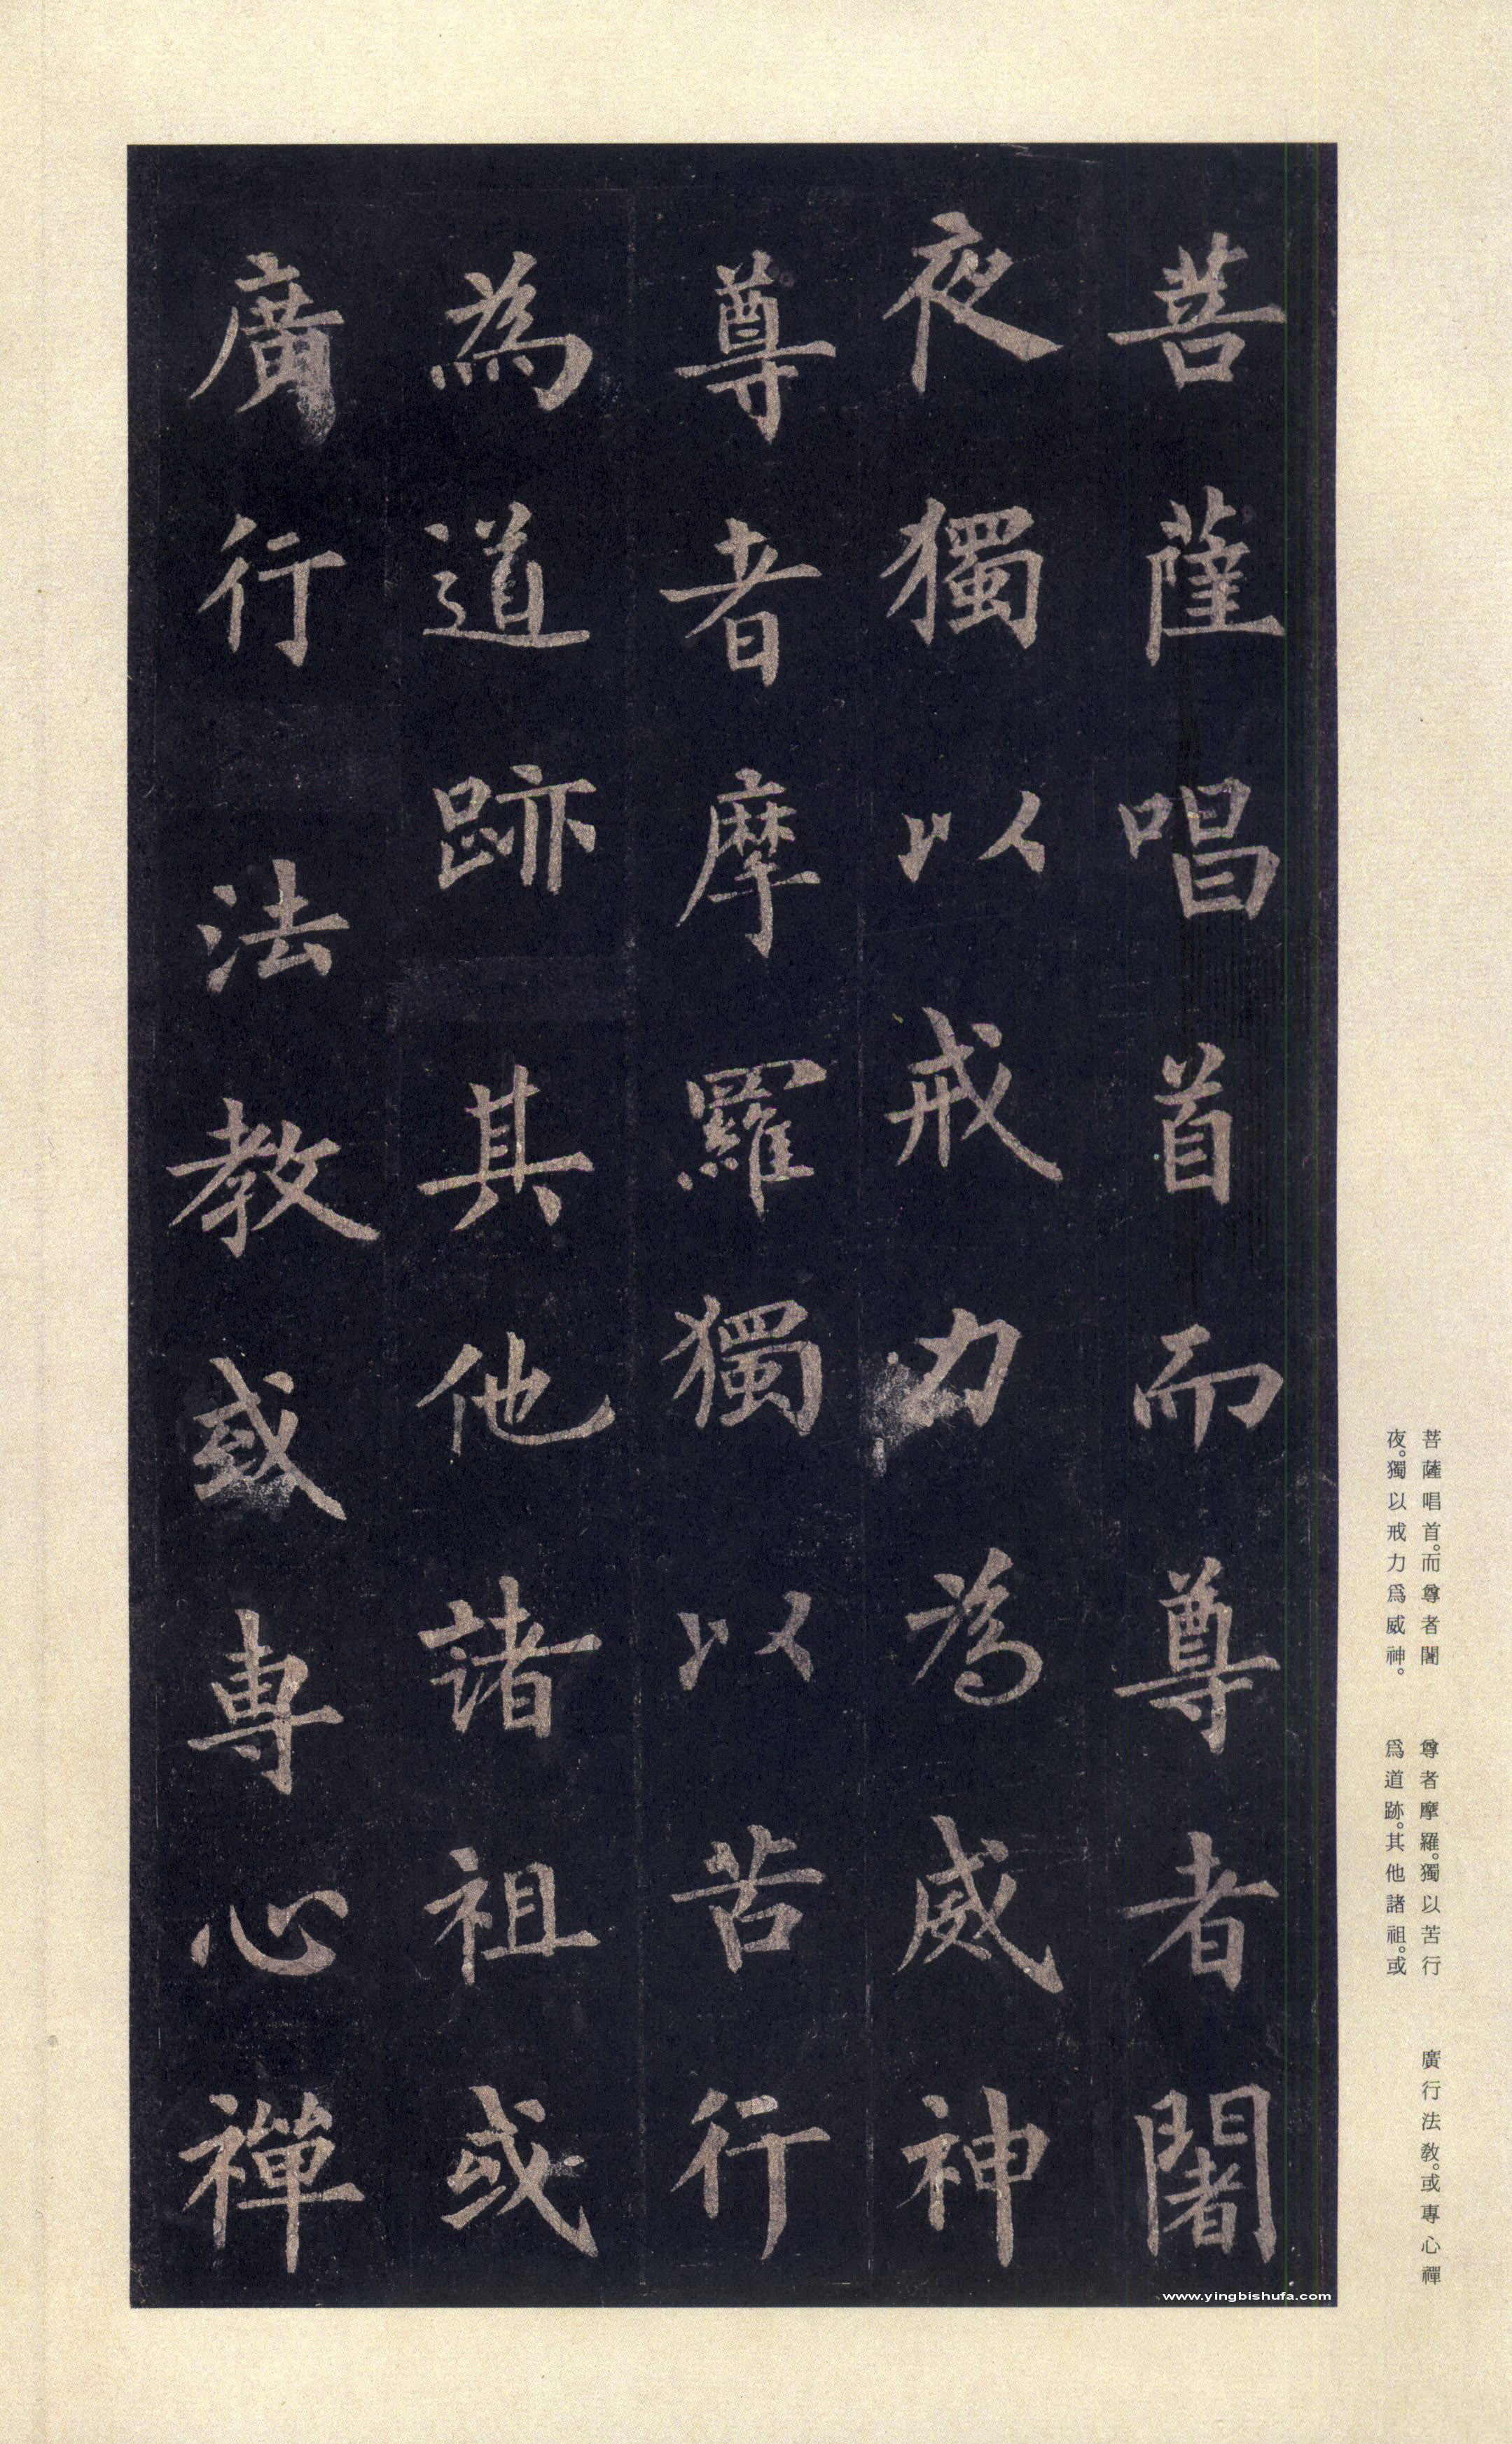 菩薩唱首而尊者闍
夜獨以戒力為威神
尊者摩羅獨以苦行
為道跡其他諸祖或
廣行法教或專心禪
菩薩唱首。而尊者闍
夜。獨以戒力爲威神。
尊者摩羅。獨以苦行
爲道跡。其他諸祖。或
廣行法教。或專心禪
www.yingbishufa.com